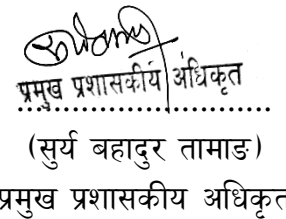 प्रमुख प्रशासकीय अधिकृत
........................................
(सुर्य बहादुर तामाङ)
प्रमुख प्रशासकीय अधिकृत